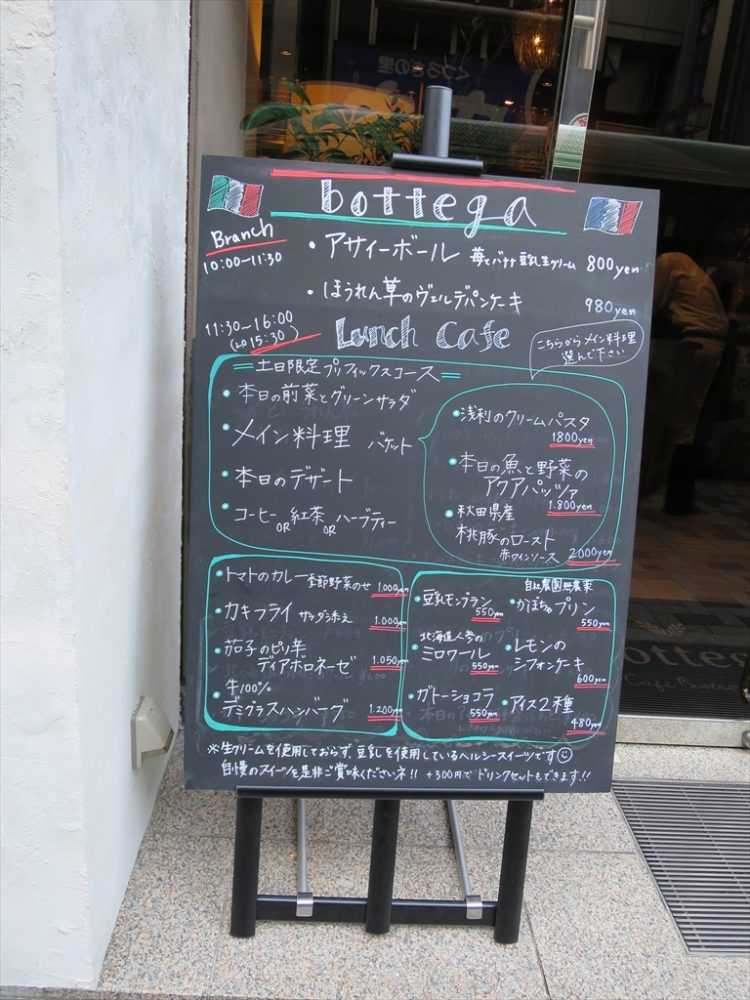 くつろぎの里
bottega
Branch
10:00〜11:30
・アサイーボール 苺とバナナ 豆乳生クリーム 800yen
・ほうれん草のヴェルデパンケーキ 980yen
11:30〜16:00
(LO 15:30)
Lunch Cafe
こちらからメイン料理
選んで下さい
土日限定プリフィックスコース
・本日の前菜とグリーンサラダ
・メイン料理 バケット
・本日のデザート
・コーヒー OR 紅茶 OR ハーブティー
・浅利のクリームパスタ
1800yen
・本日の魚と野菜の
アクアパッツァ
1.800yen
・秋田県産
桃豚のロースト
赤ワインソース 2000yen
・トマトのカレー 季節野菜のせ 1.000yen
・カキフライ サラダ添え 1.000yen
・茄子のピリ辛
ディアボロネーゼ 1.050yen
・牛100%
デミグラスハンバーグ 1.200yen
・豆乳モンブラン
550yen
自社農園無農薬
・かぼちゃプリン
550yen
・北海道人参の
ミロワール
550yen
・レモンの
シフォンケーキ
600yen
・ガトーショコラ
550yen
・アイス2種
480yen
※生クリームを使用しておらず、豆乳を使用しているヘルシースイーツです
自慢のスイーツを是非ご賞味くださいネ!! +300円でドリンクセットもできます!!